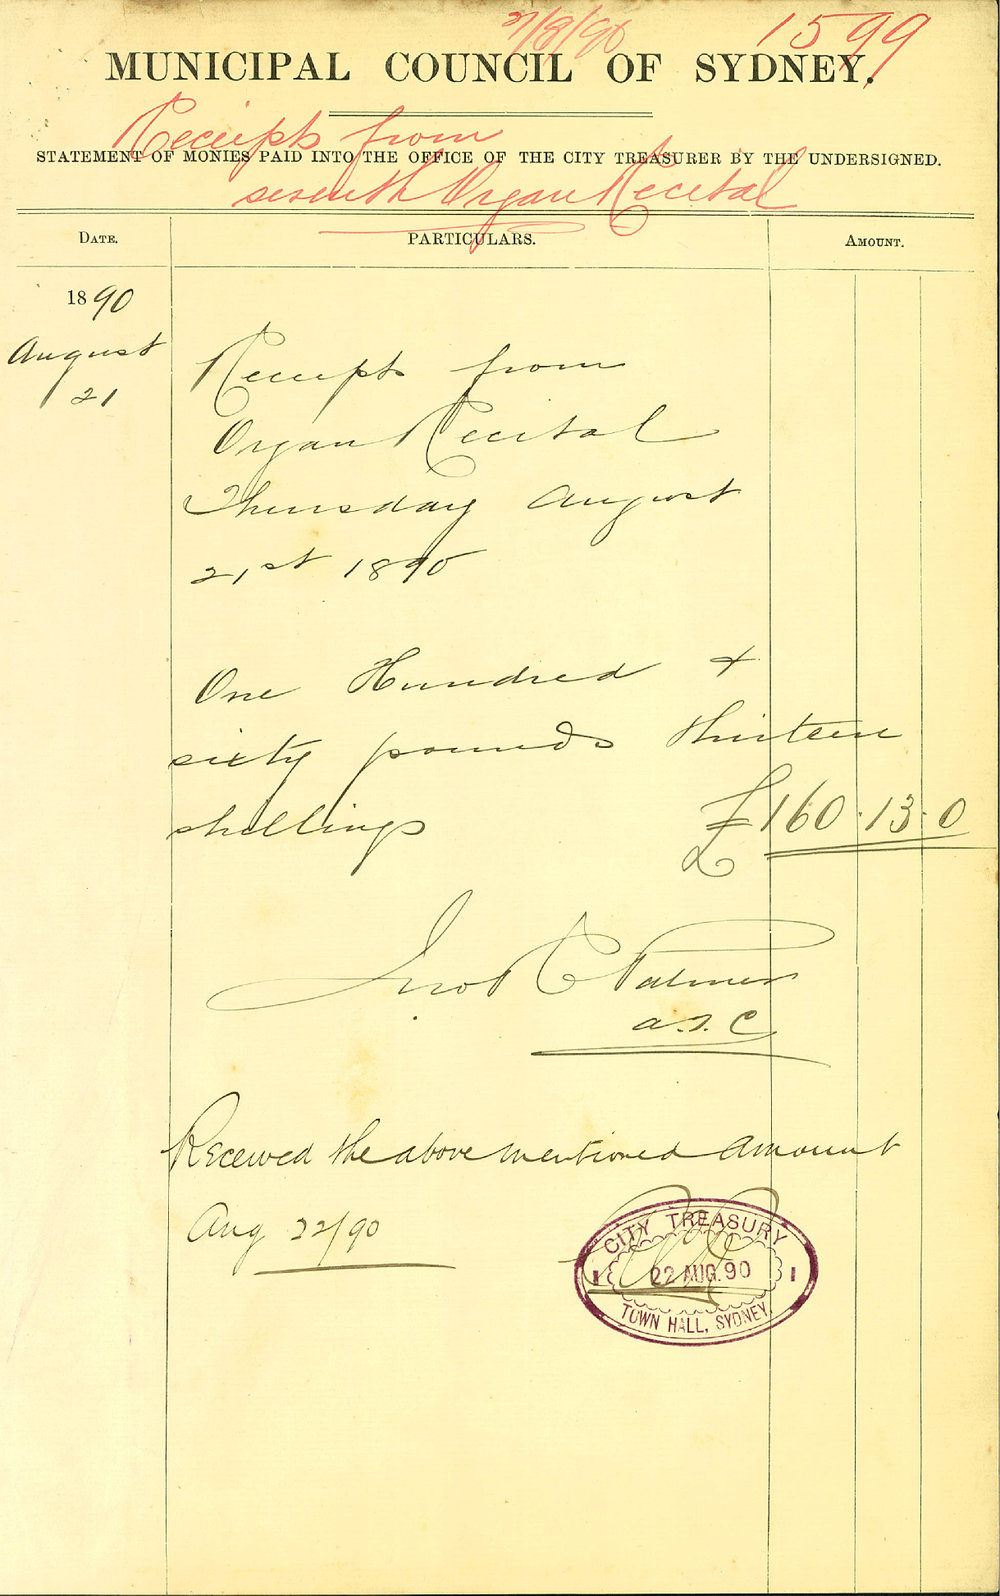 27/8/90 1599
MUNICIPAL COUNCIL OF SYDNEY.
Receipts from
STATEMENT OF MONIES PAID INTO THE OFFICE OF THE CITY TREASURER BY THE UNDERSIGNED.
seventh Organ Recital
DATE. PARTICULARS. AMOUNT.
1890
August
21
Receipts from
Organ Recital
Thursday August
21st 1890
One Hundred +
sixty pounds thirteen
shillings £160.13.0
Jno C Palmer
a.T.C
Received the above mentioned amount
Aug 22/90
CITY TREASURY
22 AUG. 90
TOWN HALL, SYDNEY.